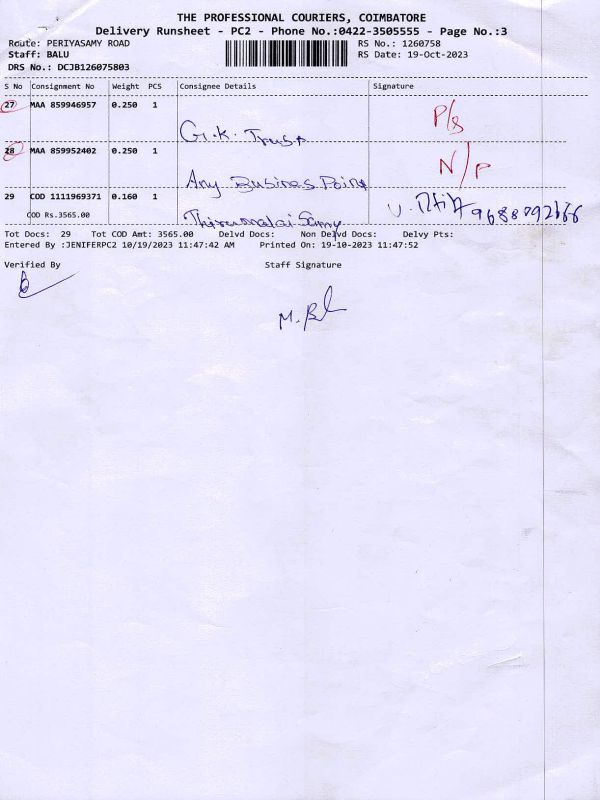 THE PROFESSIONAL COURIERS, COIMBATORE
Delivery Runsheet - PC2 - Phone No.:0422-3505555 - Page No.:3
Route: PERIYASAMY ROAD RS No.: 1260758
Staff: BALU RS Date: 19-Oct-2023
DRS No.: DCJB126075803
S No Consignment No Weight PCS Consignee Details Signature
27 MAA 859946957 0.250 1
G.K. Trust P/s
28 MAA 859952402 0.250 1 N/P
Any Busines Point
29 COD 1111969371 0.160 1
COD Rs.3565.00 Thirumalai Samy
Tot Docs: 29 Tot COD Amt: 3565.00 Delvd Docs: Non Delvd Docs: Delvy Pts:
Entered By :JENIFERPC2 10/19/2023 11:47:42 AM Printed On: 19-10-2023 11:47:52
Verified By Staff Signature